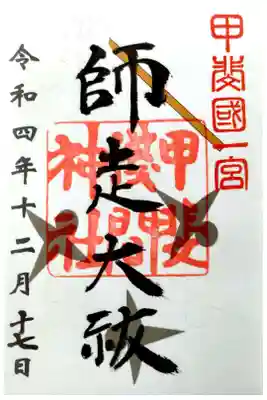 甲斐國一宮
師走大祓
神社
令和四年十二月十七日